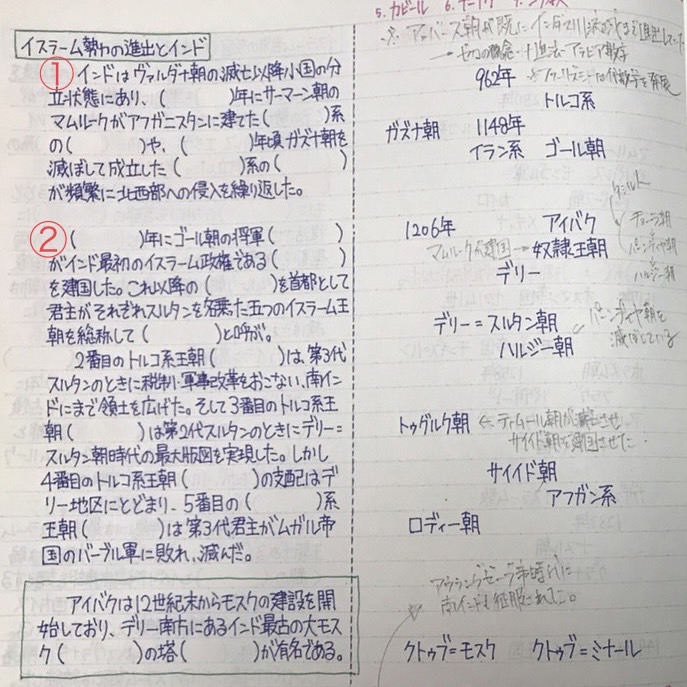 5.カビール
イスラーム勢力の進出とインド
① インドはヴァルダナ朝の滅亡以降小国の分
立状態にあり、(　　)年にサーマーン朝の
マムルークがアフガニスタンに建てた(　　)系
の(　　)や、(　　)年頃ガズナ朝を
滅ぼして成立した(　　)系の(　　)
が頻繁に北西部への侵入を繰り返した。
② (　　)年にゴール朝の将軍(　　)
がインド最初のイスラーム政権である(　　)
を建国した。これ以降の(　　)を首都として
君主がそれぞれスルタンを名乗った五つのイスラーム王
朝を総称して(　　)と呼ぶ。
2番目のトルコ系王朝(　　)は、第3代
スルタンのときに税制・軍事改革をおこない、南イン
ドにまで領土を広げた。そして3番目のトルコ系王
朝(　　)は第2代スルタンのときにデリー=
スルタン朝時代の最大版図を実現した。しかし
4番目のトルコ系王朝(　　)の支配はデ
リー地区にとどまり、5番目の(　　)系
王朝(　　)は第3代君主がムガル帝
国のバーブル軍に敗れ、滅んだ。
アイバクは12世紀末からモスクの建設を開
始しており、デリー南方にあるインド最古の大モス
ク(　　)の塔(　　)が有名である。
※アッバース朝が既にインダス川
ゼロの概念・十進法→アラビア数字
962年
トルコ系
ガズナ朝 1148年
イラン系 ゴール朝
1206年 アイバク
マムルークが建国→奴隷王朝
デリー
チョーラ朝
パーンディヤ朝
ハルジー朝
デリー=スルタン朝
ハルジー朝
パーンディヤ朝を
滅ぼしている
トゥグルク朝 ⇐ティムール朝が
サイイド朝を建国させた。
サイイド朝
アフガン系
ロディー朝
アウラングゼーブ帝時代に
南インドも征服された。
クトゥブ=モスク クトゥブ=ミナール